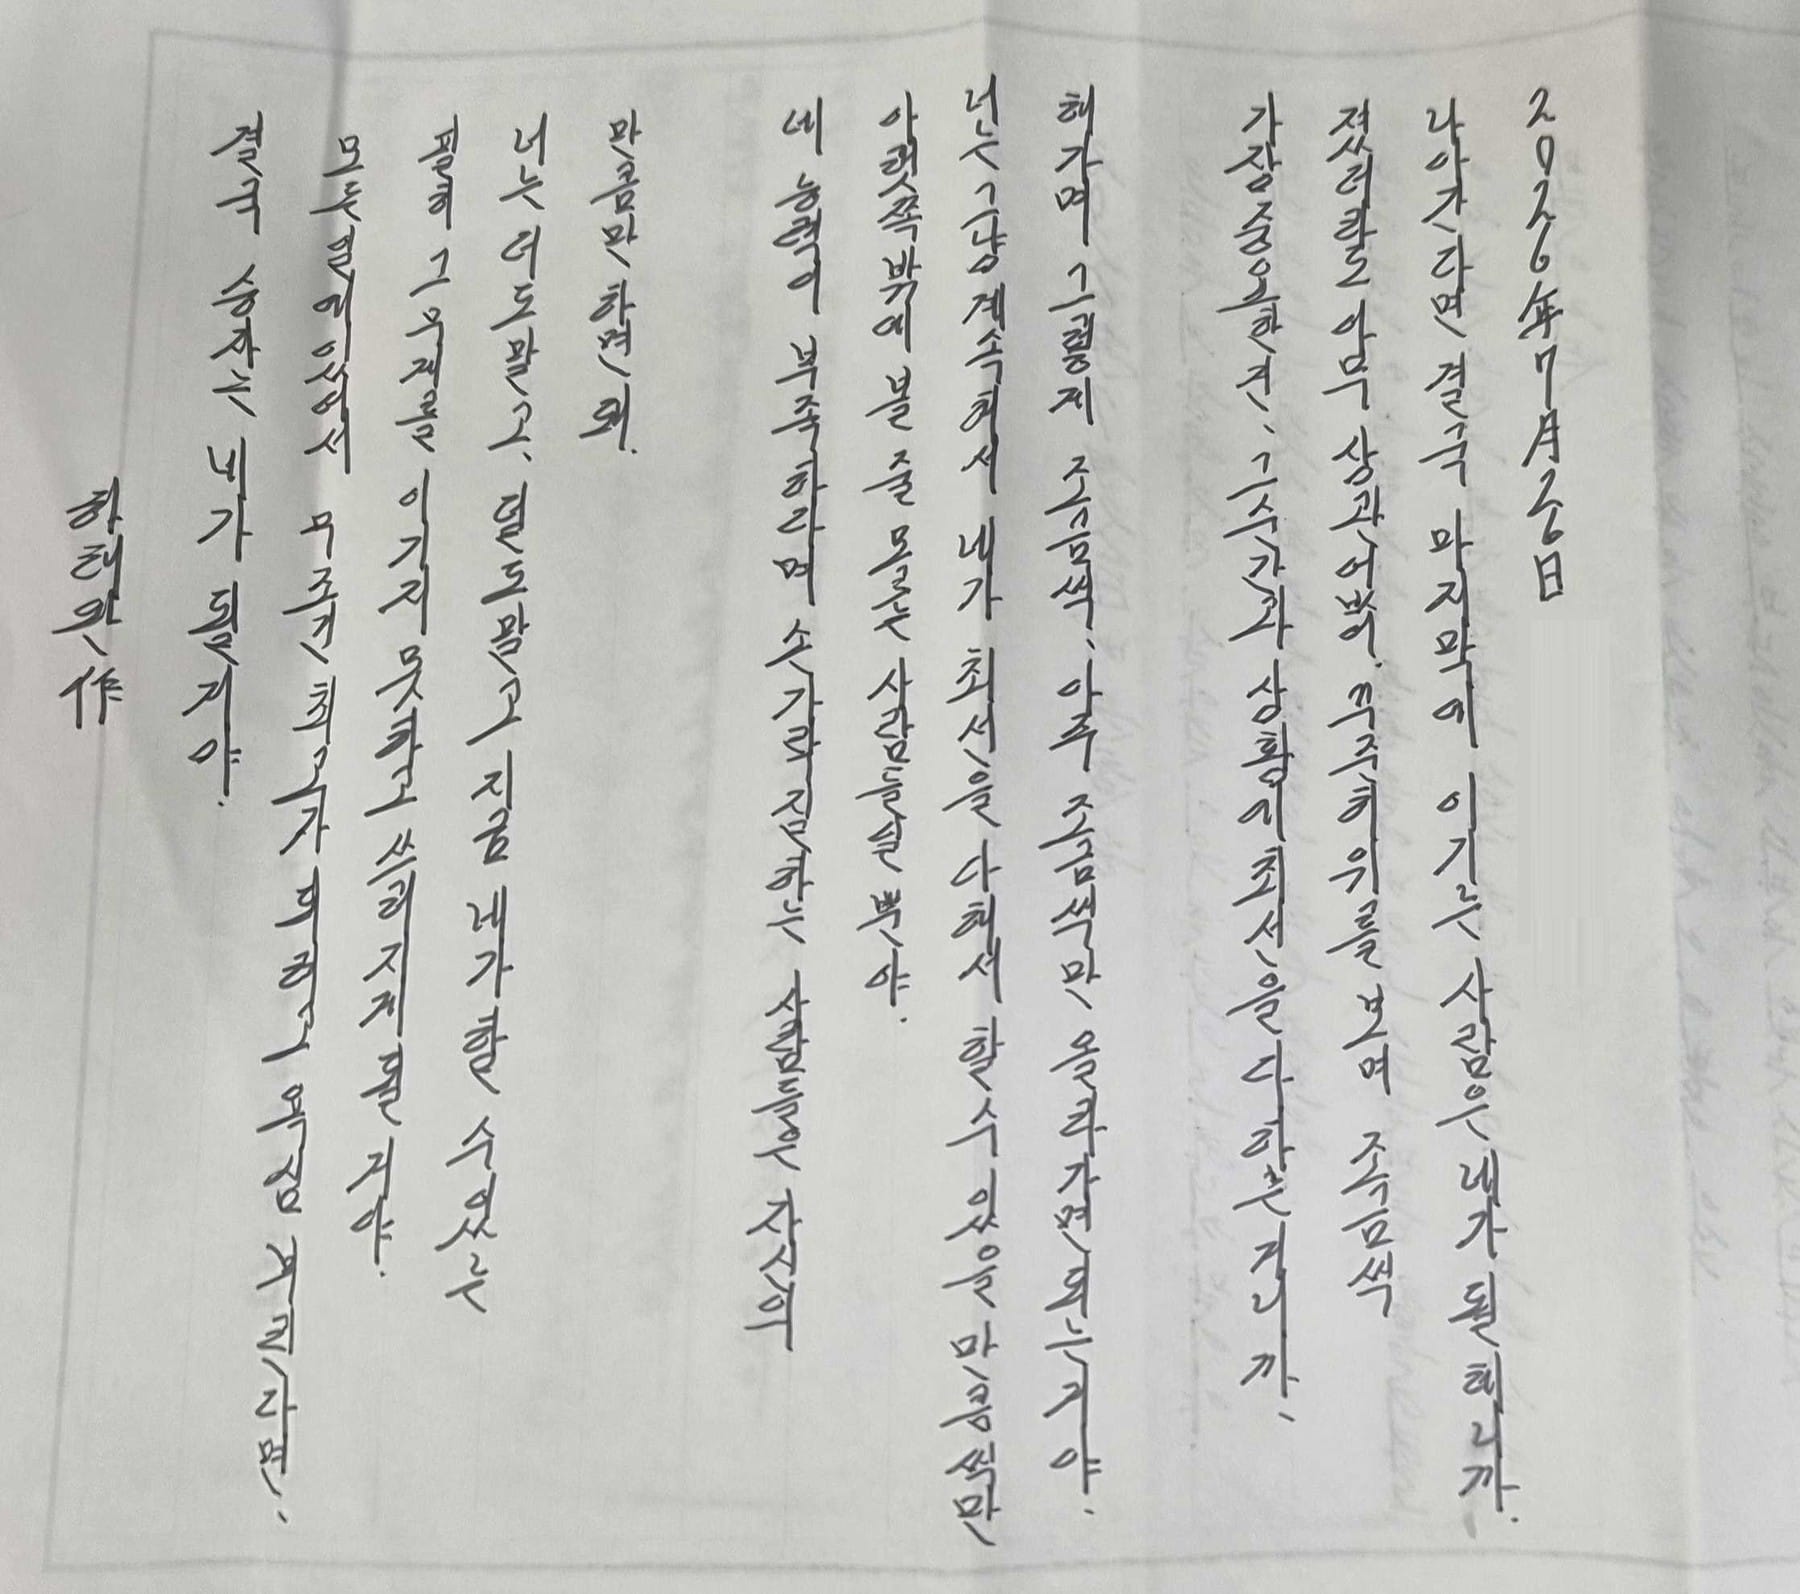 하태완 作
결국 승자는 네가 될 거야.
모든 일에 있어서 무조건 최고가 되려고 욕심 부린다면,
필히 그 무게를 이기지 못하고 쓰러지게 될 거야.
너는 더도말고, 덜도말고 지금 네가 할 수 있는
만큼만 하면 돼.
네 능력이 부족하다며 손가락질하는 사람들은 자신의
아랫쪽밖에 볼 줄 모르는 사람들일 뿐야.
너는 그냥 계속해서 네가 최선을 다해서 할 수 있을 만큼씩만
해가며 그렇게 조금씩, 아주 조금씩만 올라가면 되는거야.
가장 중요한건, 그 순간과 상황에 최선을 다하는 거니까,
졌더라도 아무 상관 없어. 꾸준히 위를 보며 조금씩
나아가다면 결국 마지막에 이기는 사람은 네가 될테니까.
2026年 7月 26日